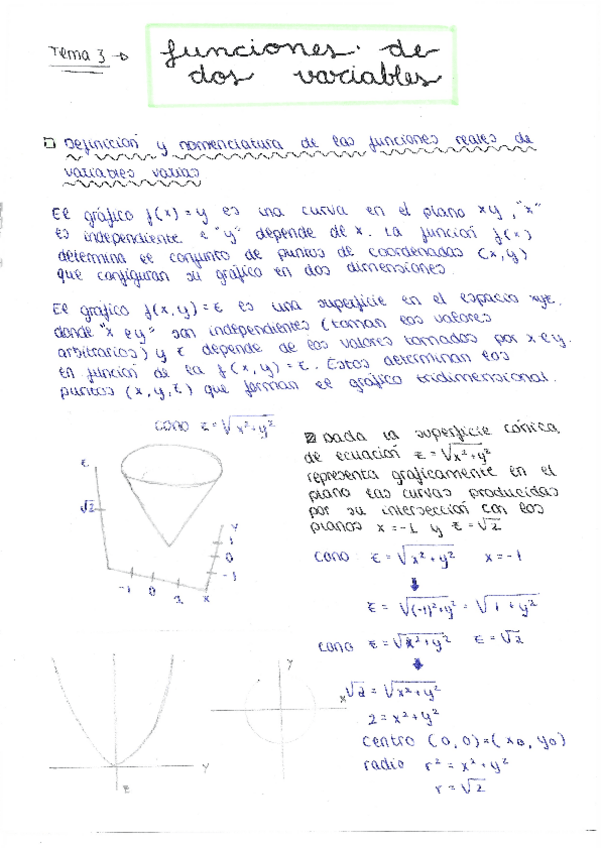 Tema 3 → funciones de
dos variables
Definición y nomenclatura de las funciones reales de
variables varias
El gráfico f(x)=y es una curva en el plano xy, "x"
es independiente e "y" depende de x. La función f(x)
determina el conjunto de puntos de coordenadas (x,y)
que configuran su gráfico en dos dimensiones.
El gráfico f(x,y)=z es una superficie en el espacio xyz.
donde "x e y" son independientes (toman los valores
arbitrarios) y z depende de los valores tomados por x e y.
en función de la f(x,y)=z. Estos determinan los
puntos (x,y,z) que forman el gráfico tridimensional.
cono z=√x²+y²
z
√2
y
1
0
-1
-1 0 1 x
Dada la superficie cónica,
de ecuación z=√x²+y²
representa gráficamente en el
plano las curvas producidas
por su intersección con los
planos x=-1 y z=√2
cono z=√x²+y² x=-1
z=√(-1)²+y² = √1+y²
cono z=√x²+y² z=√2
√2=√x²+y²
2=x²+y²
centro (0,0)=(x0,y0)
radio r²=x²+y²
r=√2
y
z
y
x